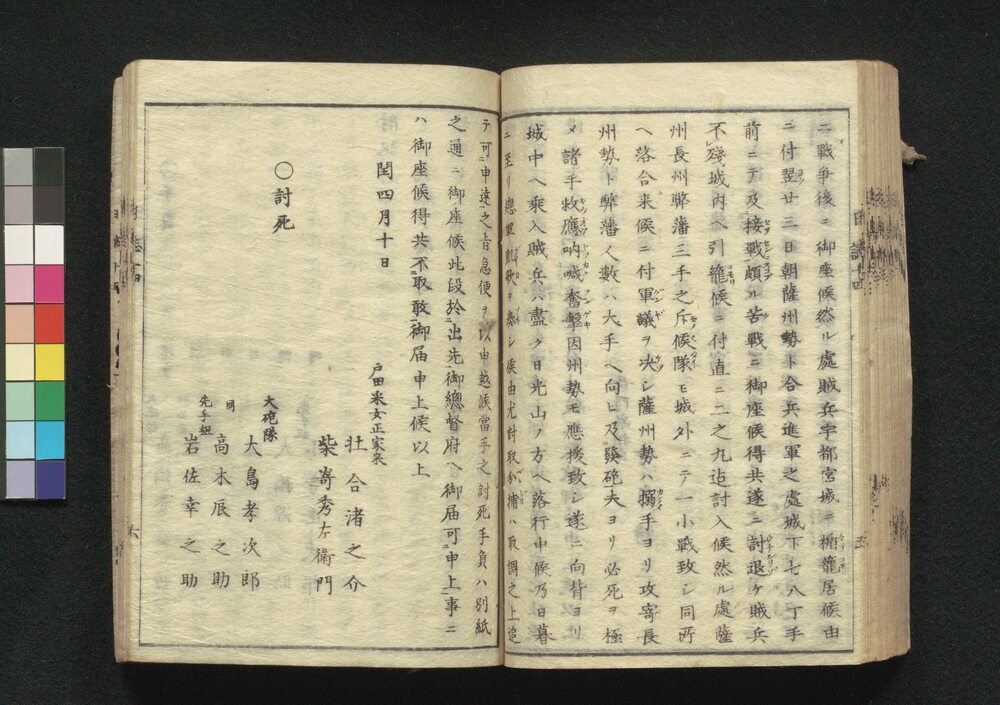 ニ戰爭後ニ御座候然ル處賊兵宇都宮城ニ楯籠居候由
ニ付翌廿三日朝薩州勢ト合兵進軍之處城下七八丁手
前ニテ及接戰頗ル苦戰ニ御座候得共遂ニ討退ケ賊兵
不殘城内ヘ引籠候ニ付直ニ二之丸迠討入候然ル處薩
州長州弊藩三手之斥候隊モ城外ニテ一小戰致シ同所
ヘ落合来候ニ付軍議ヲ决シ薩州勢ハ搦手ヨリ攻寄長
州勢ト弊藩人數ハ大手ヘ向ヒ及發砲夫ヨリ必死ヲ極
メ諸手救應吶喊奮擊因州勢モ應援致シ遂ニ向背ヨリ
城中ヘ乗入賊兵ハ盡ク日光山ノ方ヘ落行申候乃日暮
ニ至リ總軍凱歌ヲ奏シ候由尤討取分捕ハ取調之上追
テ可申達之旨急便ヲ以申越候當手之討死手負ハ別紙
之通ニ御座候此段於出先御總督府ヘ御届可申上事ニ
ハ御座候得共不取敢御届申上候以上
閏四月十日
戸田采女正家来
○討死
壮合渚之介
柴嵜秀左衛門
大砲隊
大島孝次郎
同
高木辰之助
先手組
岩佐幸之助